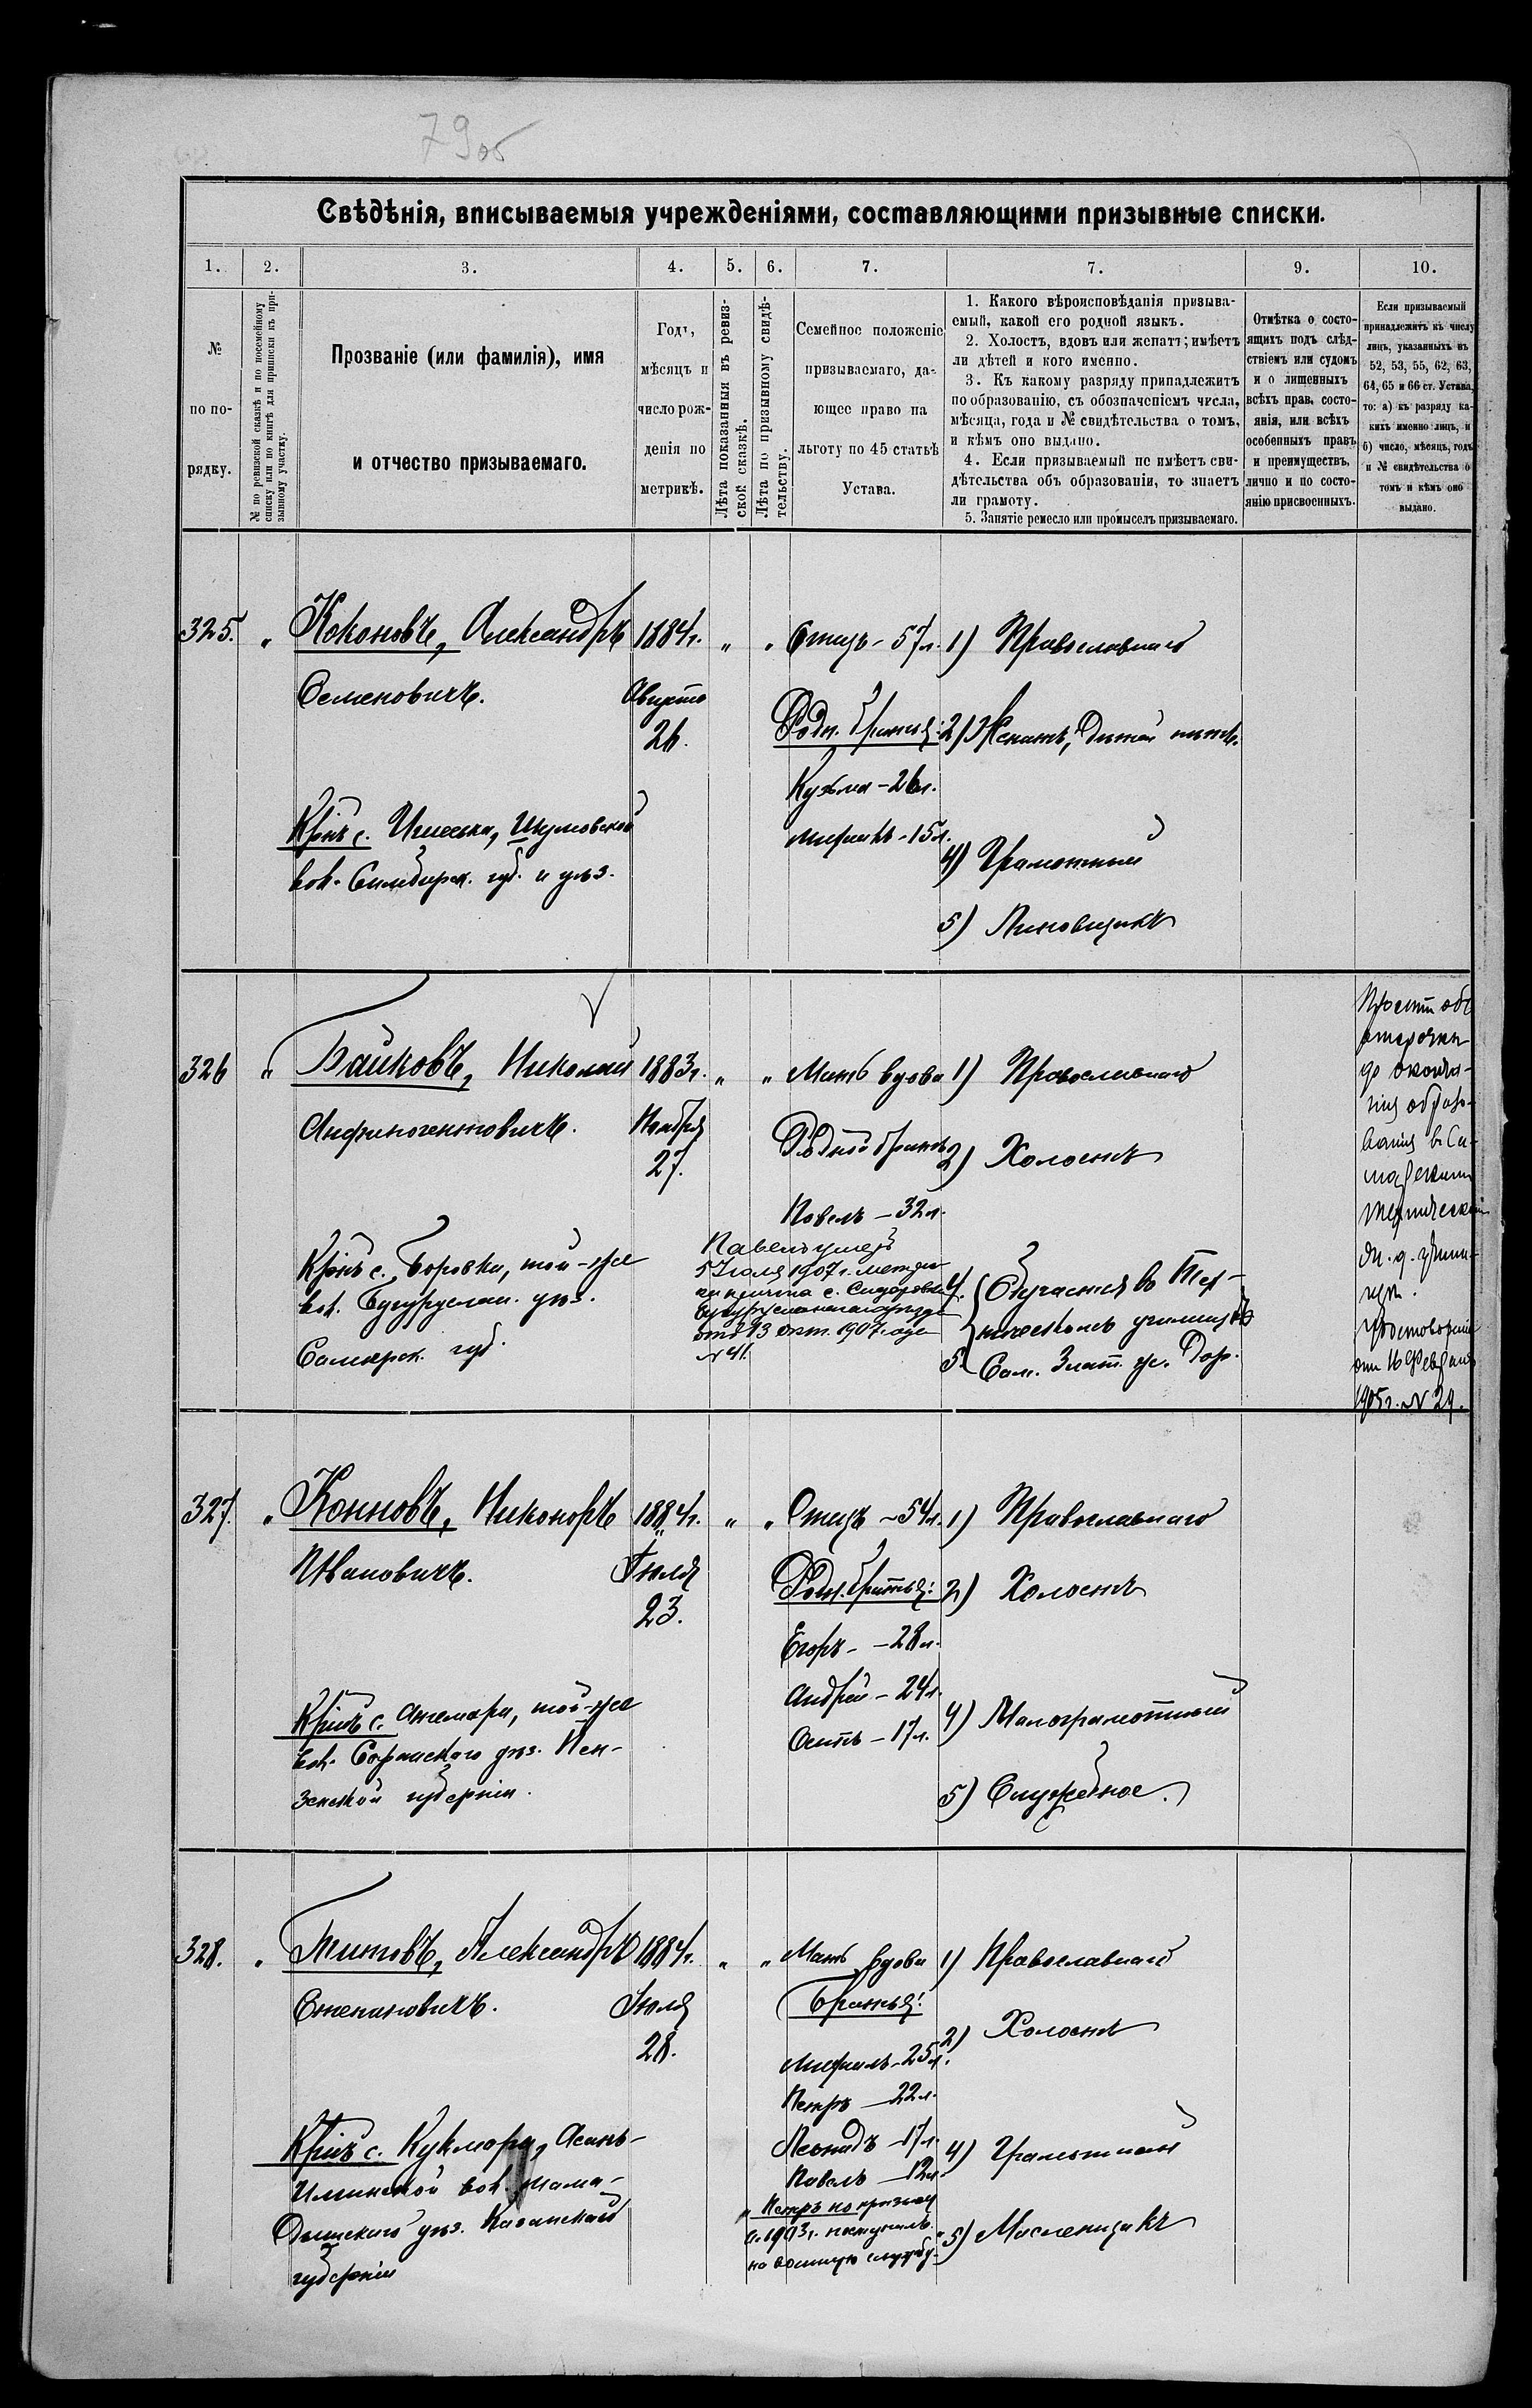 79об
Свѣдѣнія, вписываемыя учрежденіями, составляющими призывные списки.
1. 2. 3. 4. 5. 6. 7. 7. 9. 10.
№
по по-
рядку.
№ по ревизской сказкѣ и по посемейному
списку или по книгѣ для приписки къ при-
зывному участку.
Прозваніе (или фамилія), имя
и отчество призываемаго.
Годъ,
мѣсяцъ и
число рож-
денія по
метрикѣ.
Лѣта показанныя въ ревиз-
ской сказкѣ.
Лѣта по призывному свидѣ-
тельству.
Семейное положеніе
призываемаго, да-
ющее право на
льготу по 45 статьѣ
Устава.
1. Какого вѣроисповѣданія призыва-
емый, какой его родной языкъ.
2. Холостъ, вдовъ или женатъ; имѣетъ
ли дѣтей и кого именно.
3. Къ какому разряду принадлежитъ
по образованію, съ обозначеніемъ числа,
мѣсяца, года и № свидѣтельства о томъ,
и кѣмъ оно выдано.
4. Если призываемый не имѣетъ сви-
дѣтельства объ образованіи, то знаетъ
ли грамоту.
5. Занятіе ремесло или промыселъ призываемаго.
Отмѣтка о состо-
ящихъ подъ слѣд-
ствіемъ или судомъ
и о лишенныхъ
всѣхъ прав. состо-
янія, или всѣхъ
особенныхъ правъ
и преимуществъ,
лично и по состо-
янію присвоенныхъ.
Если призываемый
принадлежитъ къ числу
лицъ, указанныхъ въ
52, 53, 55, 62, 63,
64, 65 и 66 ст. Устава,
то: а) къ разряду ка-
кихъ именно лицъ, и
б) число, мѣсяцъ, годъ
и № свидѣтельства о
томъ и кѣмъ оно
выдано.
325. " Коконовъ, Александръ
Семеновичъ.
Крнъ с. Шумовской
вол. Симбирск. губ. и уѣз.
1884г.
Августа
26.
" "
Отецъ - 57 л.
Родн. братья:
Кузьма - 26 л.
- 15 л.
1) Православнаго
2) Женатъ, дѣтей нѣтъ.
4) Грамотный
5)
326 " Байковъ, Николай
Анфиногентовичъ.
Крнъ с. Боровки, той-же
вол. Бугуруслан. уѣз.
Самарск. губ.
1883г.
Ноября
27.
" "
Мать вдова
Родной братъ
Павелъ - 32 л.
Павелъ умеръ
5 Іюля 1907 г. метри-
с. Сидоровки
Бугурусланскаго уѣзда
отъ 13 окт. 1907 года
№ 41.
1) Православнаго
2) Холостъ
4. Обучается въ Тех-
ническомъ училищѣ
5. Сам. Злат. ж. дор.
отсрочки
до оконча-
нія образо-
ванія въ Са-
марскомъ
техническомъ
ж. д. учили-
щѣ.
отъ 16 Февраля
1905 г. № 29.
327. " Конновъ, Никоноръ
Ивановичъ.
Крнъ с. той-же
вол. Саранскаго уѣз. Пен-
зенской губерніи.
1884г.
Іюля
23.
" "
Отецъ - 54 л.
Родн. братья:
Егоръ - 28 л.
Андрей - 24 л.
- 17 л.
1) Православнаго
2) Холостъ
4) Малограмотный
5) Служебное.
328. " Титовъ, Александръ
Степановичъ.
Крнъ с. Кукмора, Асанъ-
Илинской вол. Мама-
дышскаго уѣз. Казанской
губерніи
1884г.
Іюля
28.
" "
Мать вдова
Братья:
Михаилъ - 25 л.
Петръ - 22 л.
Леонидъ - 17 л.
Павелъ - 12 л.
" Петръ по призыву
1903 г. поступилъ
на военную службу
1) Православнаго
2) Холостъ
4) Грамотный
5) Масленщикъ